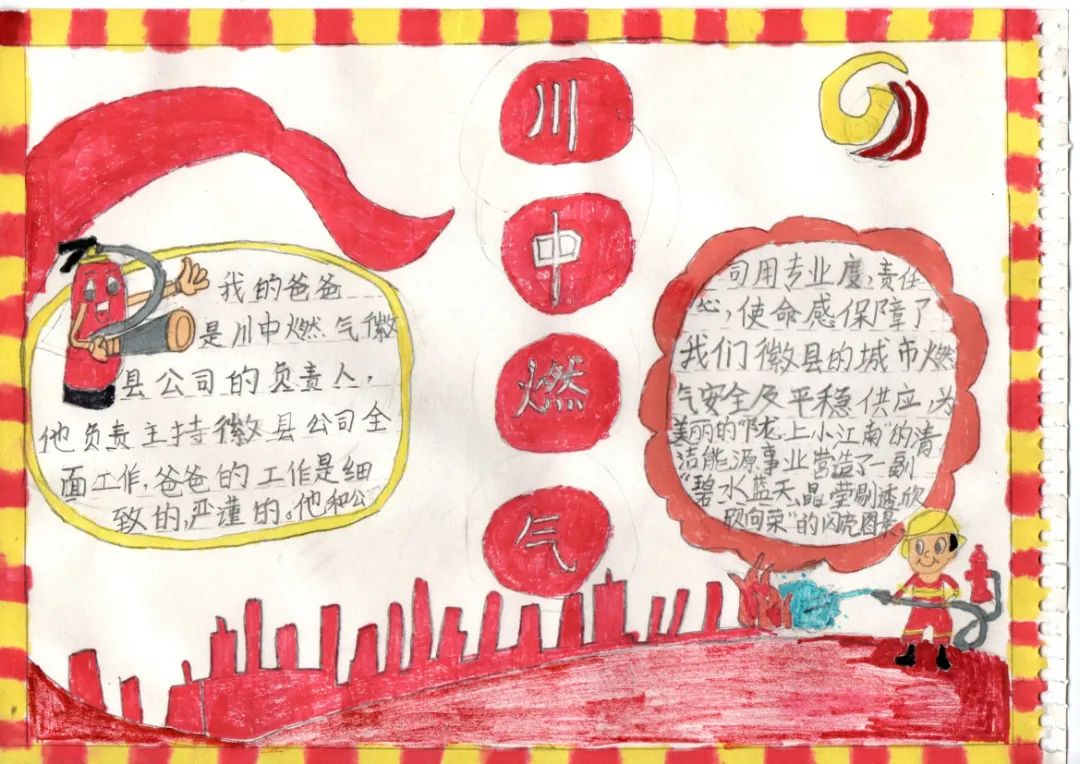 川
中
燃
气
我的爸爸
是川中燃气徽
县公司的负责人，
他负责主持徽县公司全
面工作，爸爸的工作是细
致的，严谨的。他和公
司用专业度，责任
心，使命感保障了
我们徽县的城市燃
气安全及平稳供应，为
美丽的“陇上小江南”的清
洁能源事业营造了一副
“碧水蓝天，晶莹剔透，欣
欣向荣”的闪亮图景。